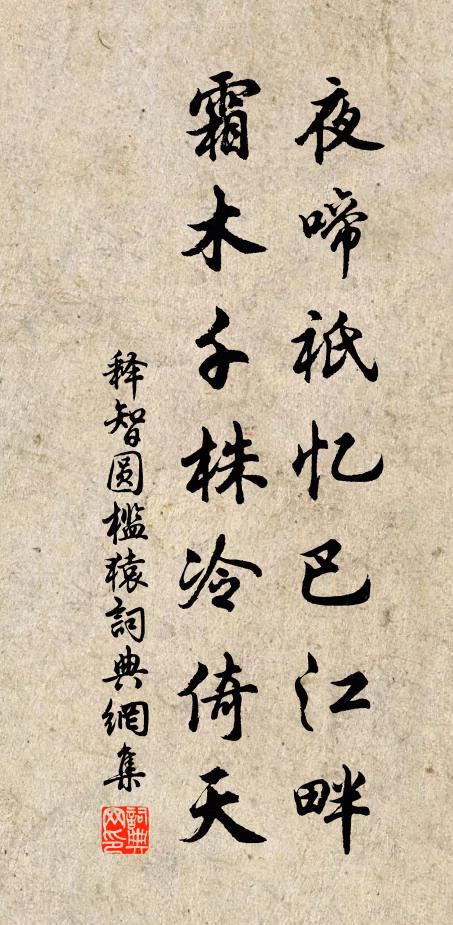 夜啼祇忆巴江畔
霜木千株冷倚天
释智圆槛猿詞典網集
詞典网印